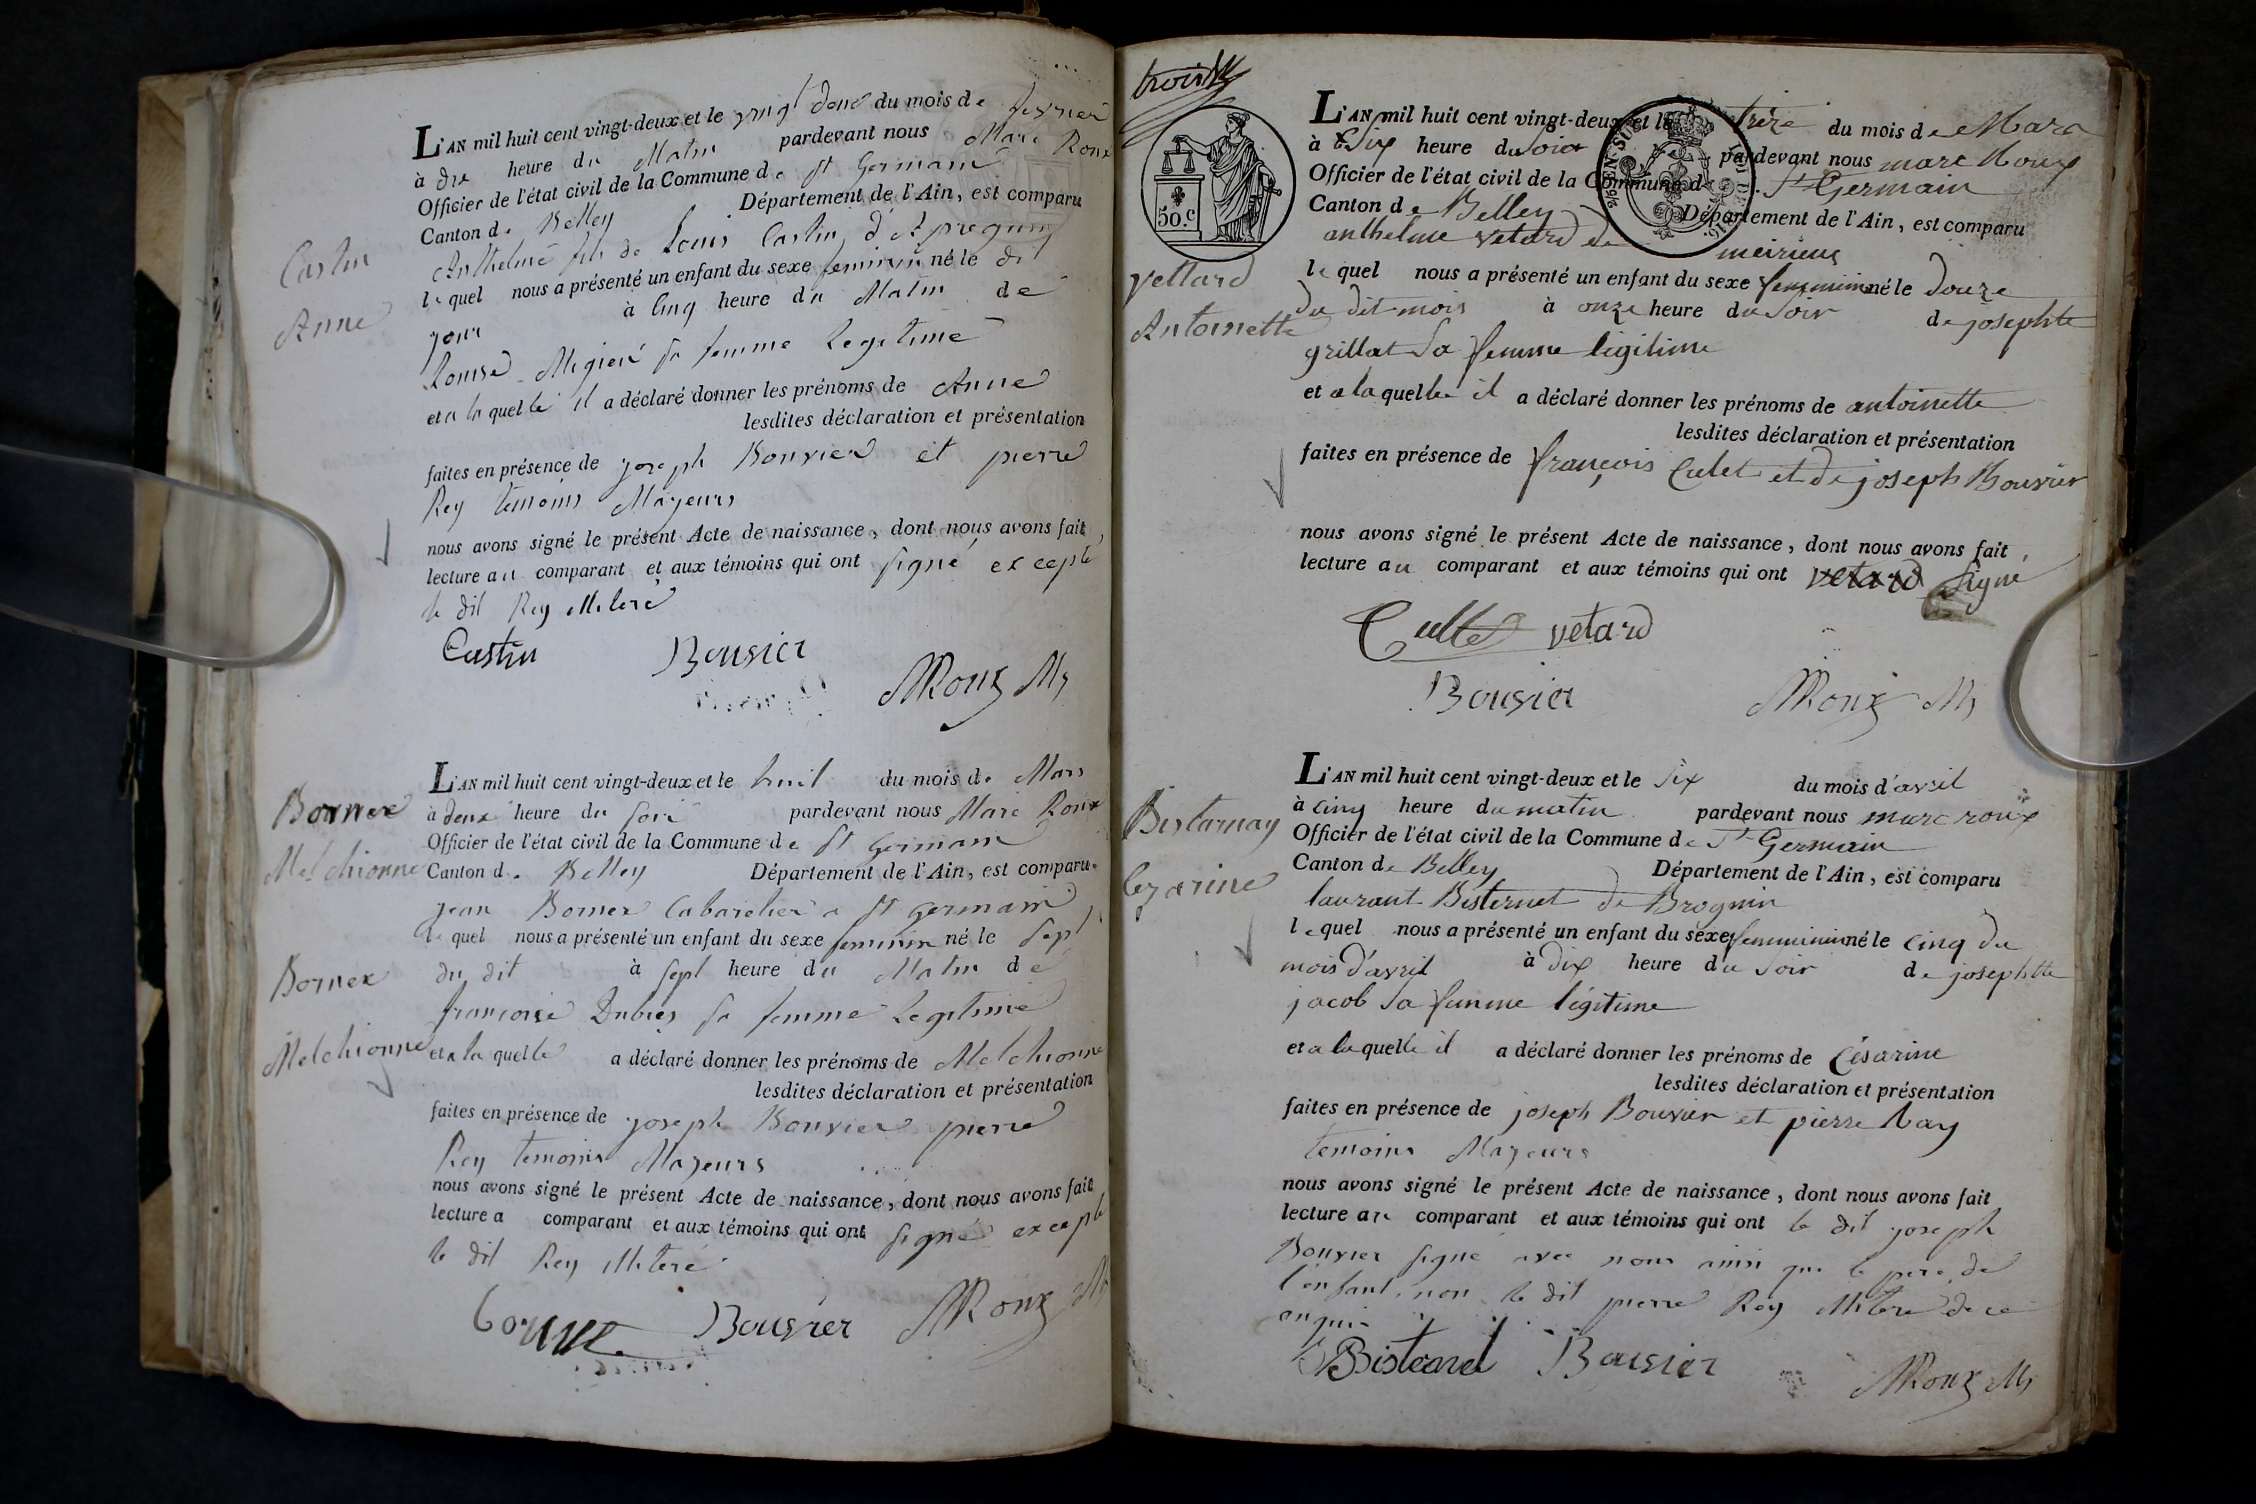 L'AN mil huit cent vingt-deux et le vingt deux du mois de fevrier
à dix heure du Matin pardevant nous Marc Roux
Officier de l'état civil de la Commune de St Germain
Canton de Belley Département de l'Ain, est comparu
Anthelme fils de Louis Castin d'Apregnin
lequel nous a présenté un enfant du sexe feminin né le dit
jour à Cinq heure du Matin de
Louise sa femme Legitime
et a la quelle il a déclaré donner les prénoms de Anne
lesdites déclaration et présentation
faites en présence de joseph Bouvier et pierre
Rey temoins Majeurs
nous avons signé le présent Acte de naissance, dont nous avons fait
lecture au comparant et aux témoins qui ont signé excepté
le dit Rey illiteré
Castin
Anne
Castin Bouvier
MRoux My
L'AN mil huit cent vingt-deux et le huit du mois de Mars
à deux heure du soir pardevant nous Marc Roux
Officier de l'état civil de la Commune de St Germain
Canton de Belley Département de l'Ain, est comparu
jean Bornex Cabaretier a St germain
lequel nous a présenté un enfant du sexe feminin né le sept
du dit à sept heure du Matin de
françoise Dubies sa femme Legitime
et a la quelle a déclaré donner les prénoms de Melchionne
lesdites déclaration et présentation
faites en présence de joseph Bouvier pierre
Rey temoins Majeurs
nous avons signé le présent Acte de naissance, dont nous avons fait
lecture a comparant et aux témoins qui ont signé excepté
le dit Rey illiteré
Bornex
Melchionne
Bornex
Melchionne
Bouvier MRoux My
trois
50.c
L'AN mil huit cent vingt-deux et le treize du mois de Mars
à Six heure du Soir pardevant nous marc Roux
Officier de l'état civil de la Commune de St Germain
Canton de Belley Département de l'Ain, est comparu
anthelme vetard de meirieux
lequel nous a présenté un enfant du sexe femminin né le douze
du dit mois à onze heure du Soir de josephte
grillat Sa femme légitime
et a la quelle il a déclaré donner les prénoms de antoinette
lesdites déclaration et présentation
faites en présence de françois Culet et de joseph Bouvier
nous avons signé le présent Acte de naissance, dont nous avons fait
lecture au comparant et aux témoins qui ont vetard Signé
vettard
Antoinette
vetard
Bouvier MRoux My
L'AN mil huit cent vingt-deux et le Six du mois d'avril
à cinq heure du matin pardevant nous marc roux
Officier de l'état civil de la Commune de St Germain
Canton de Belley Département de l'Ain, est comparu
laurant Bisternet de Brognin
lequel nous a présenté un enfant du sexe femminin né le cinq du
mois d'avril à dix heure du Soir de josephtte
jacob Sa femme légitime
et a la quelle il a déclaré donner les prénoms de Césarine
lesdites déclaration et présentation
faites en présence de joseph Bouvier et pierre Ray
temoins Majeurs
nous avons signé le présent Acte de naissance, dont nous avons fait
lecture au comparant et aux témoins qui ont le dit joseph
Bouvier signé avec nous ainsi que le pere de
l'enfant, non le dit pierre Rey illiteré de ce
enquis
Bistarnay
Cezarine
Bouvier
MRoux My